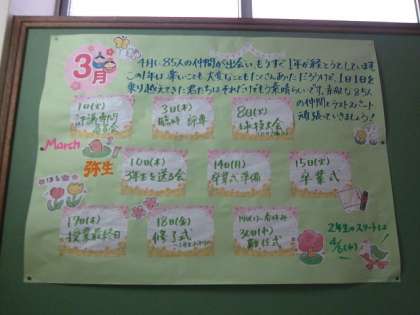 3月
4月に85人の仲間が出会い、もうすぐ1年が経とうとしています。
この1年は楽しいことも大変なこともたくさんあっただろうけど、1日1日を
乗り越えてきた君たちはそれだけでもう素晴らしいです。
の仲間とラストスパート
頑張っていきましょう！
March
弥生
はる
1日(火)
3日(木)
8日(火)
球技大会
10日(木)
3年生を送る会
14日(月)
卒業式準備
15日(火)
卒業式
17日(木)
授業最終日
18日(金)
修了式
30日(水)
離任式
2年生のスタートは